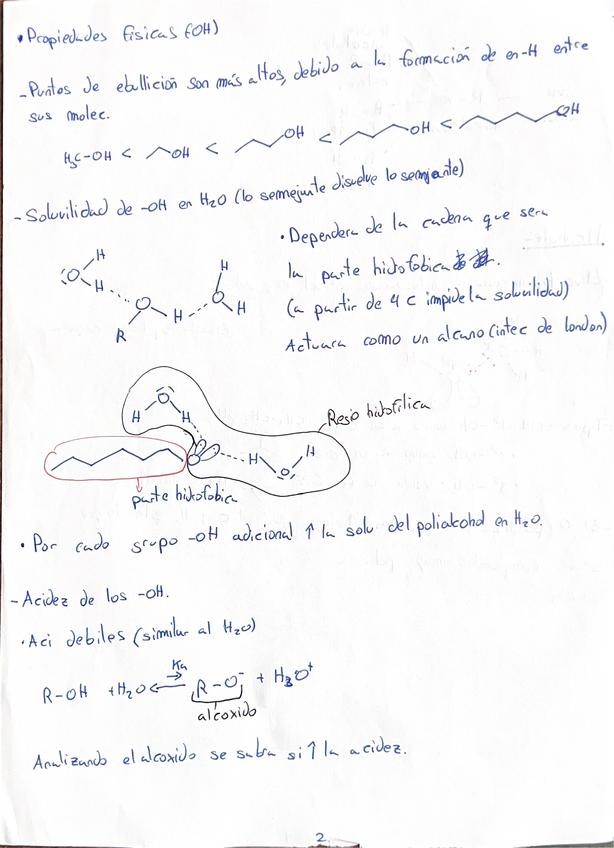 • Propiedades físicas (OH)
- Puntos de ebullición son más altos, debido a la formación de en-H entre
sus molec.
H₃C-OH < OH < OH < OH < OH
- Soluvilidad de -OH en H₂O (lo semejante disuelve lo semejante)
• Dependera de la cadena que sera
la parte hidrofobica
(a partir de 4 c impide la soluvilidad)
Actuara como un alcano (intec de london)
O H H
O R H
O H H
H O H
O H O H
Resio hidrofilica
parte hidrofobica
• Por cada grupo -OH adicional ↑ la solu del polialcohol en H₂O.
- Acidez de los -OH.
• Aci debiles (similar al H₂O)
R-OH + H₂O ⇌ R-O⁻ + H₃O⁺
Ka
alcoxido
Analizando el alcoxido se sabra si ↑ la acidez.
2